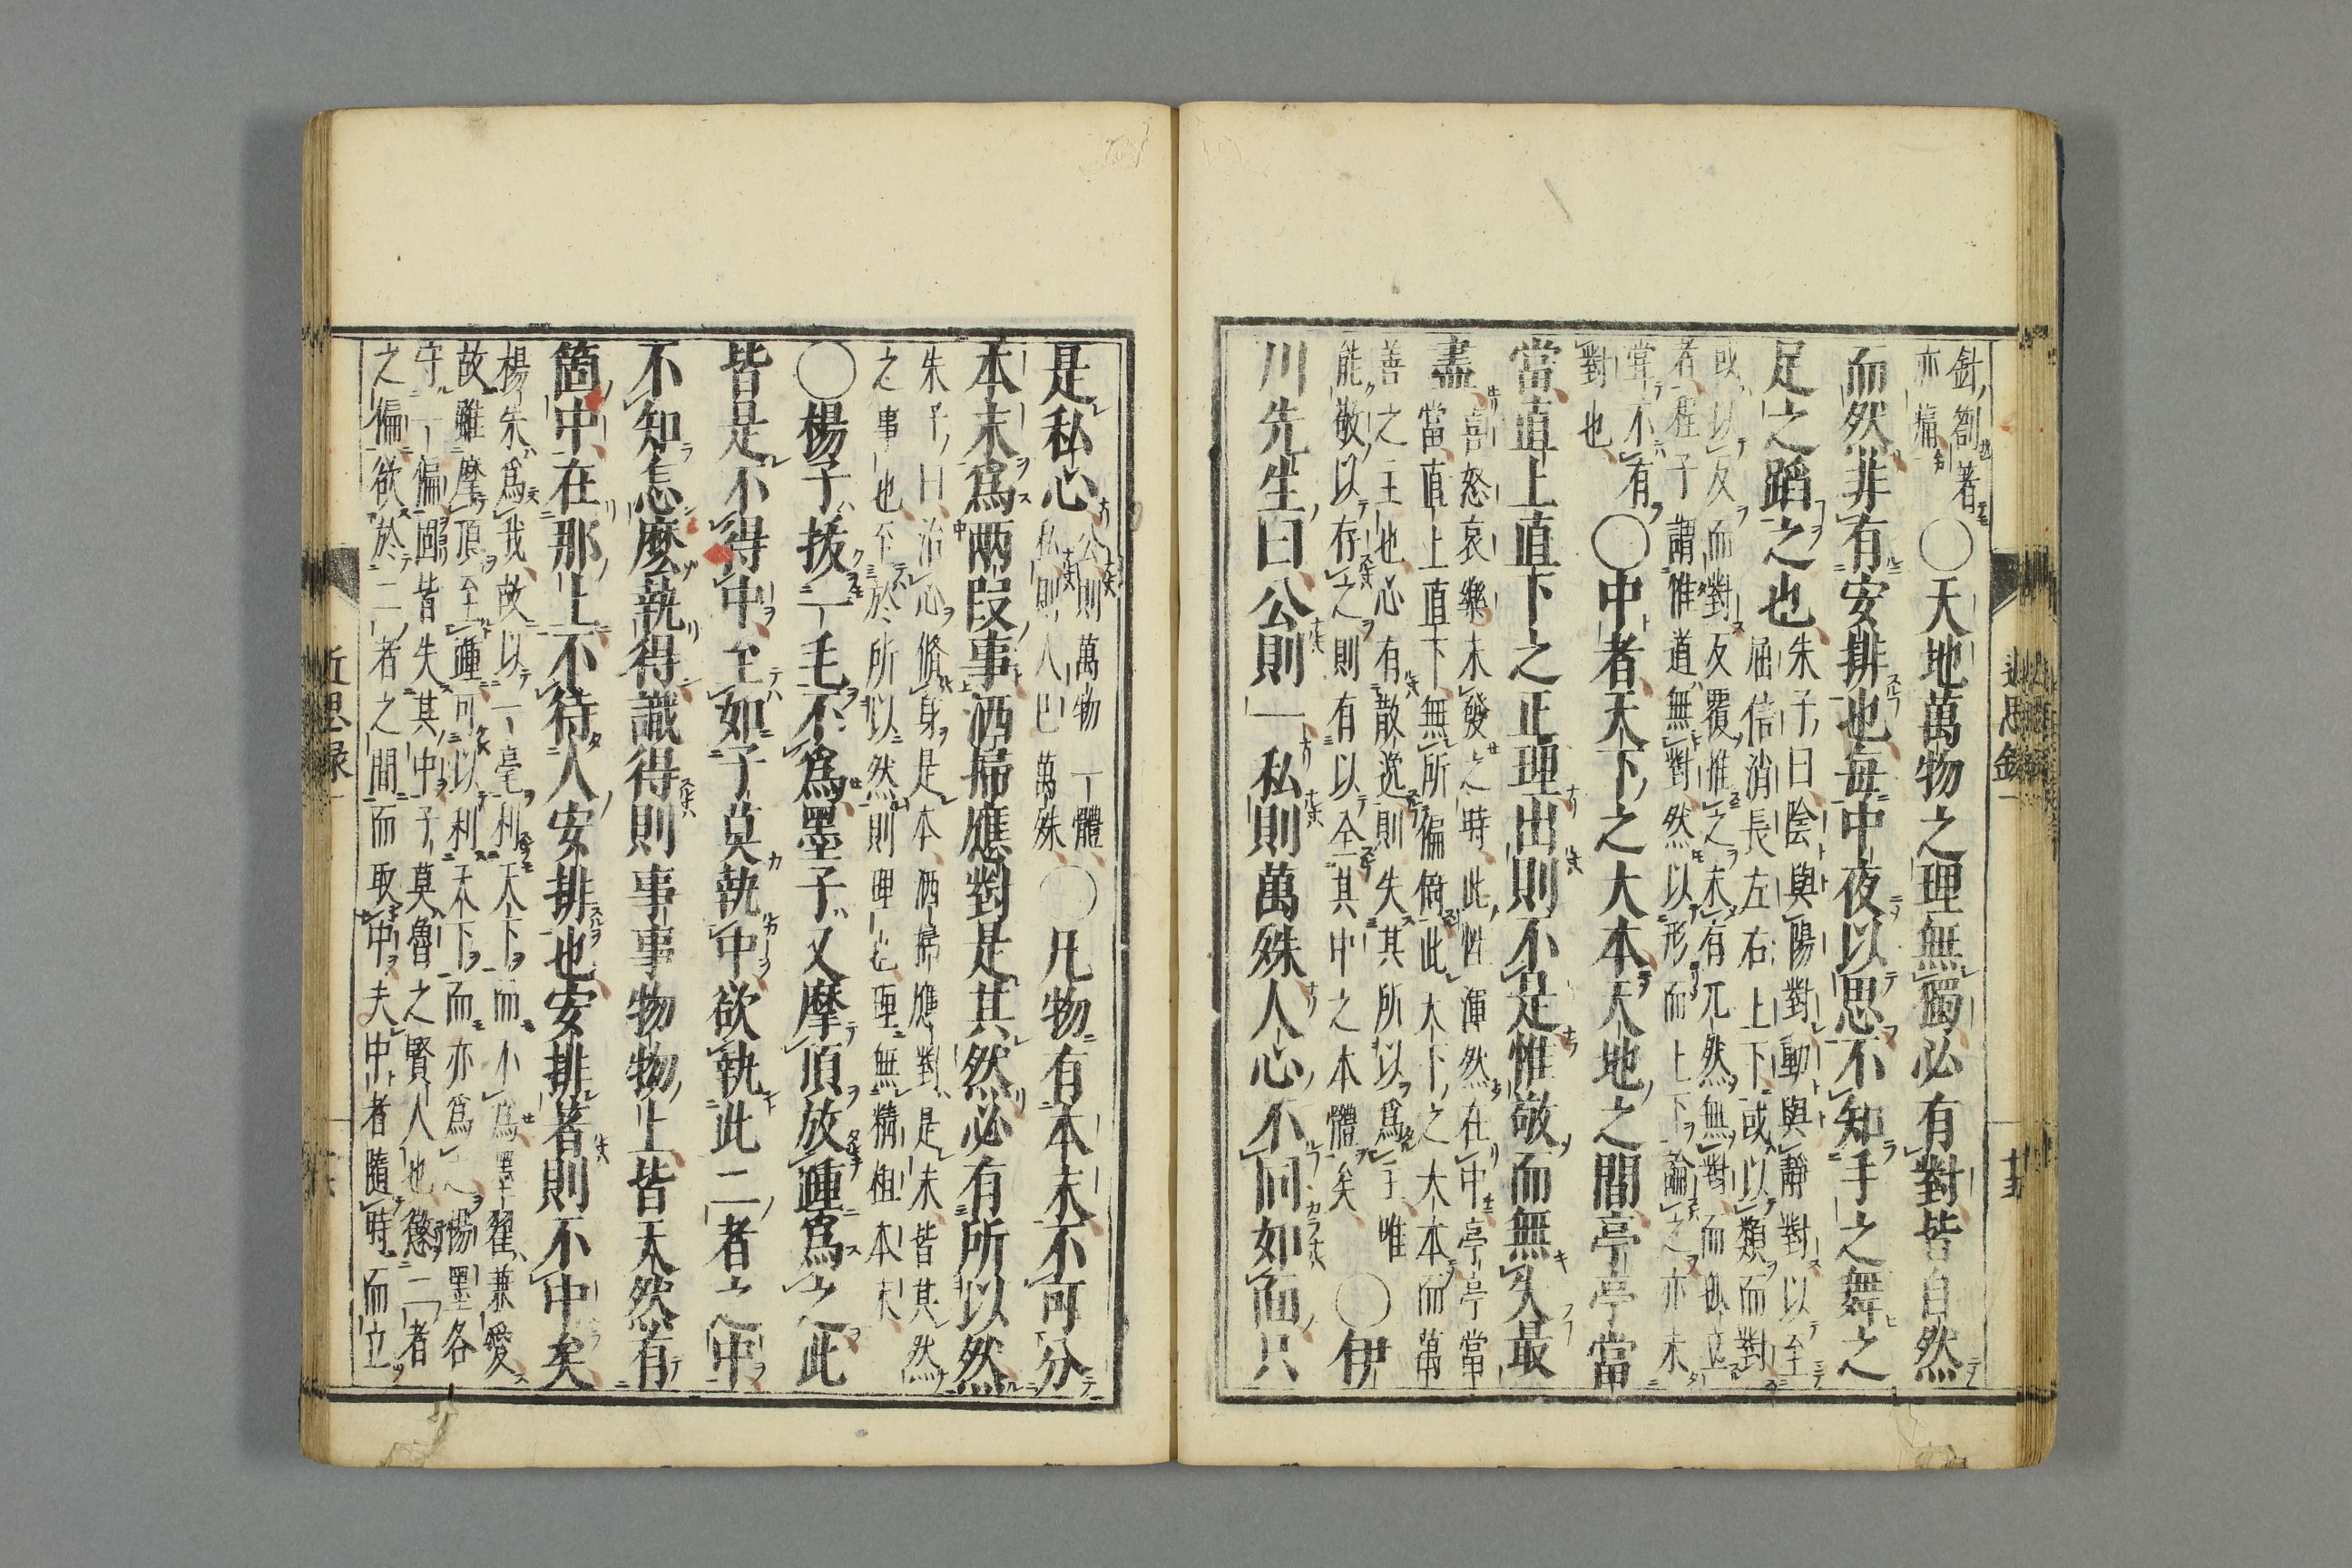 近思録一
十五
針劄著
亦痛
○天地萬物之理無獨必有對皆自然
而然非有安排也毎中夜以思不知手之舞之
足之蹈之也
朱子曰陰與陽對動與靜對以至
屈信消長左右上下或以類而對
或以反而對反覆推之未有兀然無對而孤立
者程子謂惟道無對然以形而上下論之亦未
嘗不有
對也
○中者天下之大本天地之間亭亭當
當直上直下之正理出則不是惟敬而無失最
盡
喜怒哀樂未發之時此性渾然在中亭亭當
當直上直下無所偏倚此天下之大本而萬
善之主也心有散逸則失其所以爲主唯
能敬以存之則有以全其中之本體矣
○伊
川先生曰公則一私則萬殊人心不同如面只
是私心
公則萬物一體
私則人巳萬殊
○凡物有本末不可分
本末爲兩段事洒掃應對是其然必有所以然
朱子曰治心脩身是本洒掃應對是末皆其然
之事也至於所以然則理也理無精粗本末
○楊子拔一毛不爲墨子又摩頂放踵爲之此
皆是不得中至如子莫執中欲執此二者之中
不知怎麼執得識得則事事物物上皆天然有
箇中在那上不待人安排也安排著則不中矣
楊朱爲我故以一毫利天下而不爲墨翟兼愛
故雖摩頂至踵可以利天下而亦爲之楊墨各
守一偏固皆失其中子莫魯之賢人也懲二者
之偏欲於二者之間而取中夫中者隨時而立
近思録一